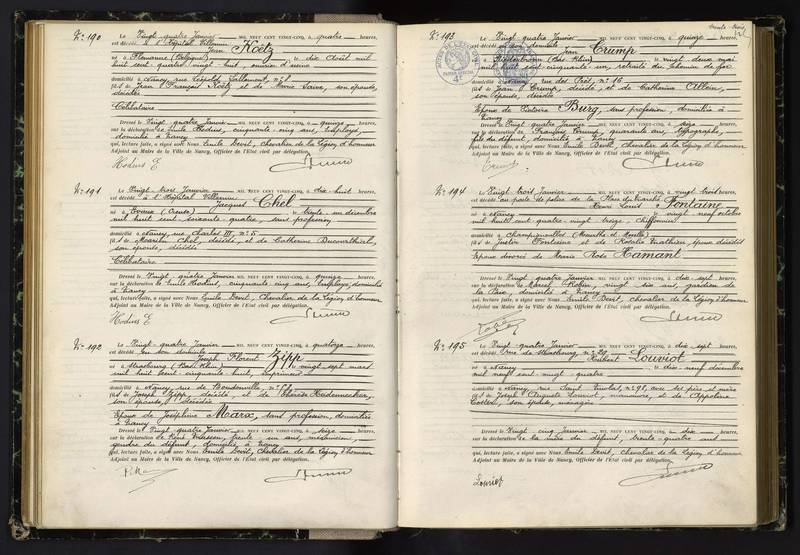 N: 190
Le Vingt-quatre Janvier MIL NEUF CENT VINGT-CINQ, à quatre heures,
est décédé à l'Hôpital Villemin
Jean Koëtz
né à (Belgique) le dix Août mil
huit cent quatre vingt-huit,
domicilié à Nancy, rue Léopold Lallement, n° 8
fils de Jean François Koëtz et de Marie son épouse,
décédés
Célibataire
Dressé le Vingt quatre Janvier MIL NEUF CENT VINGT-CINQ, à quinze heures,
sur la déclaration de Emile Hodius, cinquante-cinq ans, employé,
domicilié à Nancy
qui, lecture faite, a signé avec Nous Emile Devit, Chevalier de la Légion d'honneur
Adjoint au Maire de la Ville de Nancy, Officier de l'Etat civil par délégation.
Hodius E
N: 191
Le Vingt trois Janvier MIL NEUF CENT VINGT-CINQ, à dix-huit heures,
est décédé à l'Hôpital Villemin
Jacques Chel
né à (Creuse) le trente un décembre
mil huit cent soixante-quatre, sans profession
domicilié à Nancy, rue Charles III, n° 5
fils de Chel, décédé, et de Catherine
son épouse, décédée
Célibataire
Dressé le Vingt-quatre Janvier MIL NEUF CENT VINGT-CINQ, à quinze heures,
sur la déclaration de Emile Hodius, cinquante cinq ans, employé, domicilié
à Nancy
qui, lecture faite, a signé avec Nous Emile Devit, Chevalier de la Légion d'honneur
Adjoint au Maire de la Ville de Nancy, Officier de l'Etat civil par délégation.
Hodius E
N: 192
Le Vingt-quatre Janvier MIL NEUF CENT VINGT-CINQ, à quatorze heures,
est décédé en son domicile
Joseph Florent Zipp
né à Strasbourg (Bas Rhin) le vingt sept mars
mil huit cent cinquante huit, imprimeur
domicilié à Nancy, rue de Boudonville, n°
fils de Joseph Zipp, décédé, et de Thérèse
son épouse, décédée
Epoux de Joséphine Marx, sans profession, domiciliée
à Nancy
Dressé le Vingt-quatre Janvier MIL NEUF CENT VINGT-CINQ, à seize heures,
sur la déclaration de René trente un ans, mécanicien,
gendre du défunt, domicilié à Nancy
qui, lecture faite, a signé avec Nous Emile Devit, Chevalier de la Légion d'honneur
Adjoint au Maire de la Ville de Nancy, Officier de l'Etat civil par délégation.
N: 193
Le Vingt quatre Janvier MIL NEUF CENT VINGT-CINQ, à quinze heures,
est décédé en son domicile
Jean Crump
né à Niederbronn (Bas Rhin) le vingt deux mai
mil huit cent cinquante un, retraité du chemin de fer
domicilié à Nancy, rue des Prés, n° 16
fils de Jean Crump, décédé, et de Catherine
son épouse, décédée
Epoux de Victoire Burg, sans profession, domiciliée à
Nancy
Dressé le Vingt quatre Janvier MIL NEUF CENT VINGT-CINQ, à seize heures,
sur la déclaration de François Crump, quarante ans, typographe,
fils du défunt, domicilié à Nancy
qui, lecture faite, a signé avec Nous Emile Devit, Chevalier de la Légion d'honneur
Adjoint au Maire de la Ville de Nancy, Officier de l'Etat civil par délégation.
Crump
N: 194
Le Vingt trois Janvier MIL NEUF CENT VINGT-CINQ, à vingt trois heures,
est décédé au poste de police de la Place du Marché
Henri Louis Fontaine
né à Nancy le vingt neuf octobre
mil huit cent quatre vingt treize, chiffonnier
domicilié à Champigneulles (Meurthe et Moselle)
fils de Justin Fontaine et de Rosalie époux décédés
Epoux divorcé de Marie Rose Hamant
Dressé le Vingt quatre Janvier MIL NEUF CENT VINGT-CINQ, à dix sept heures,
sur la déclaration de Marcel Robin, vingt six ans, gardien de
la Paix, domicilié à Nancy
qui, lecture faite, a signé avec Nous Emile Devit, Chevalier de la Légion d'honneur
Adjoint au Maire de la Ville de Nancy, Officier de l'Etat civil par délégation.
N: 195
Le Vingt-quatre Janvier MIL NEUF CENT VINGT-CINQ, à dix sept heures,
est décédé rue de Strasbourg n° 29
Hubert Louviot
né à Nancy le dix-neuf décembre
mil neuf cent vingt-quatre
domicilié à Nancy, rue Saint n° 98, avec ses père et mère
fils de Joseph Auguste Louviot, manœuvre, et de Appoline
son épouse, ménagère
Dressé le Vingt cinq Janvier MIL NEUF CENT VINGT-CINQ, à dix heures,
sur la déclaration de la mère du défunt, trente-quatre ans
qui, lecture faite, a signé avec Nous Emile Devit, Chevalier de la Légion d'honneur
Adjoint au Maire de la Ville de Nancy, Officier de l'Etat civil par délégation.
Louviot